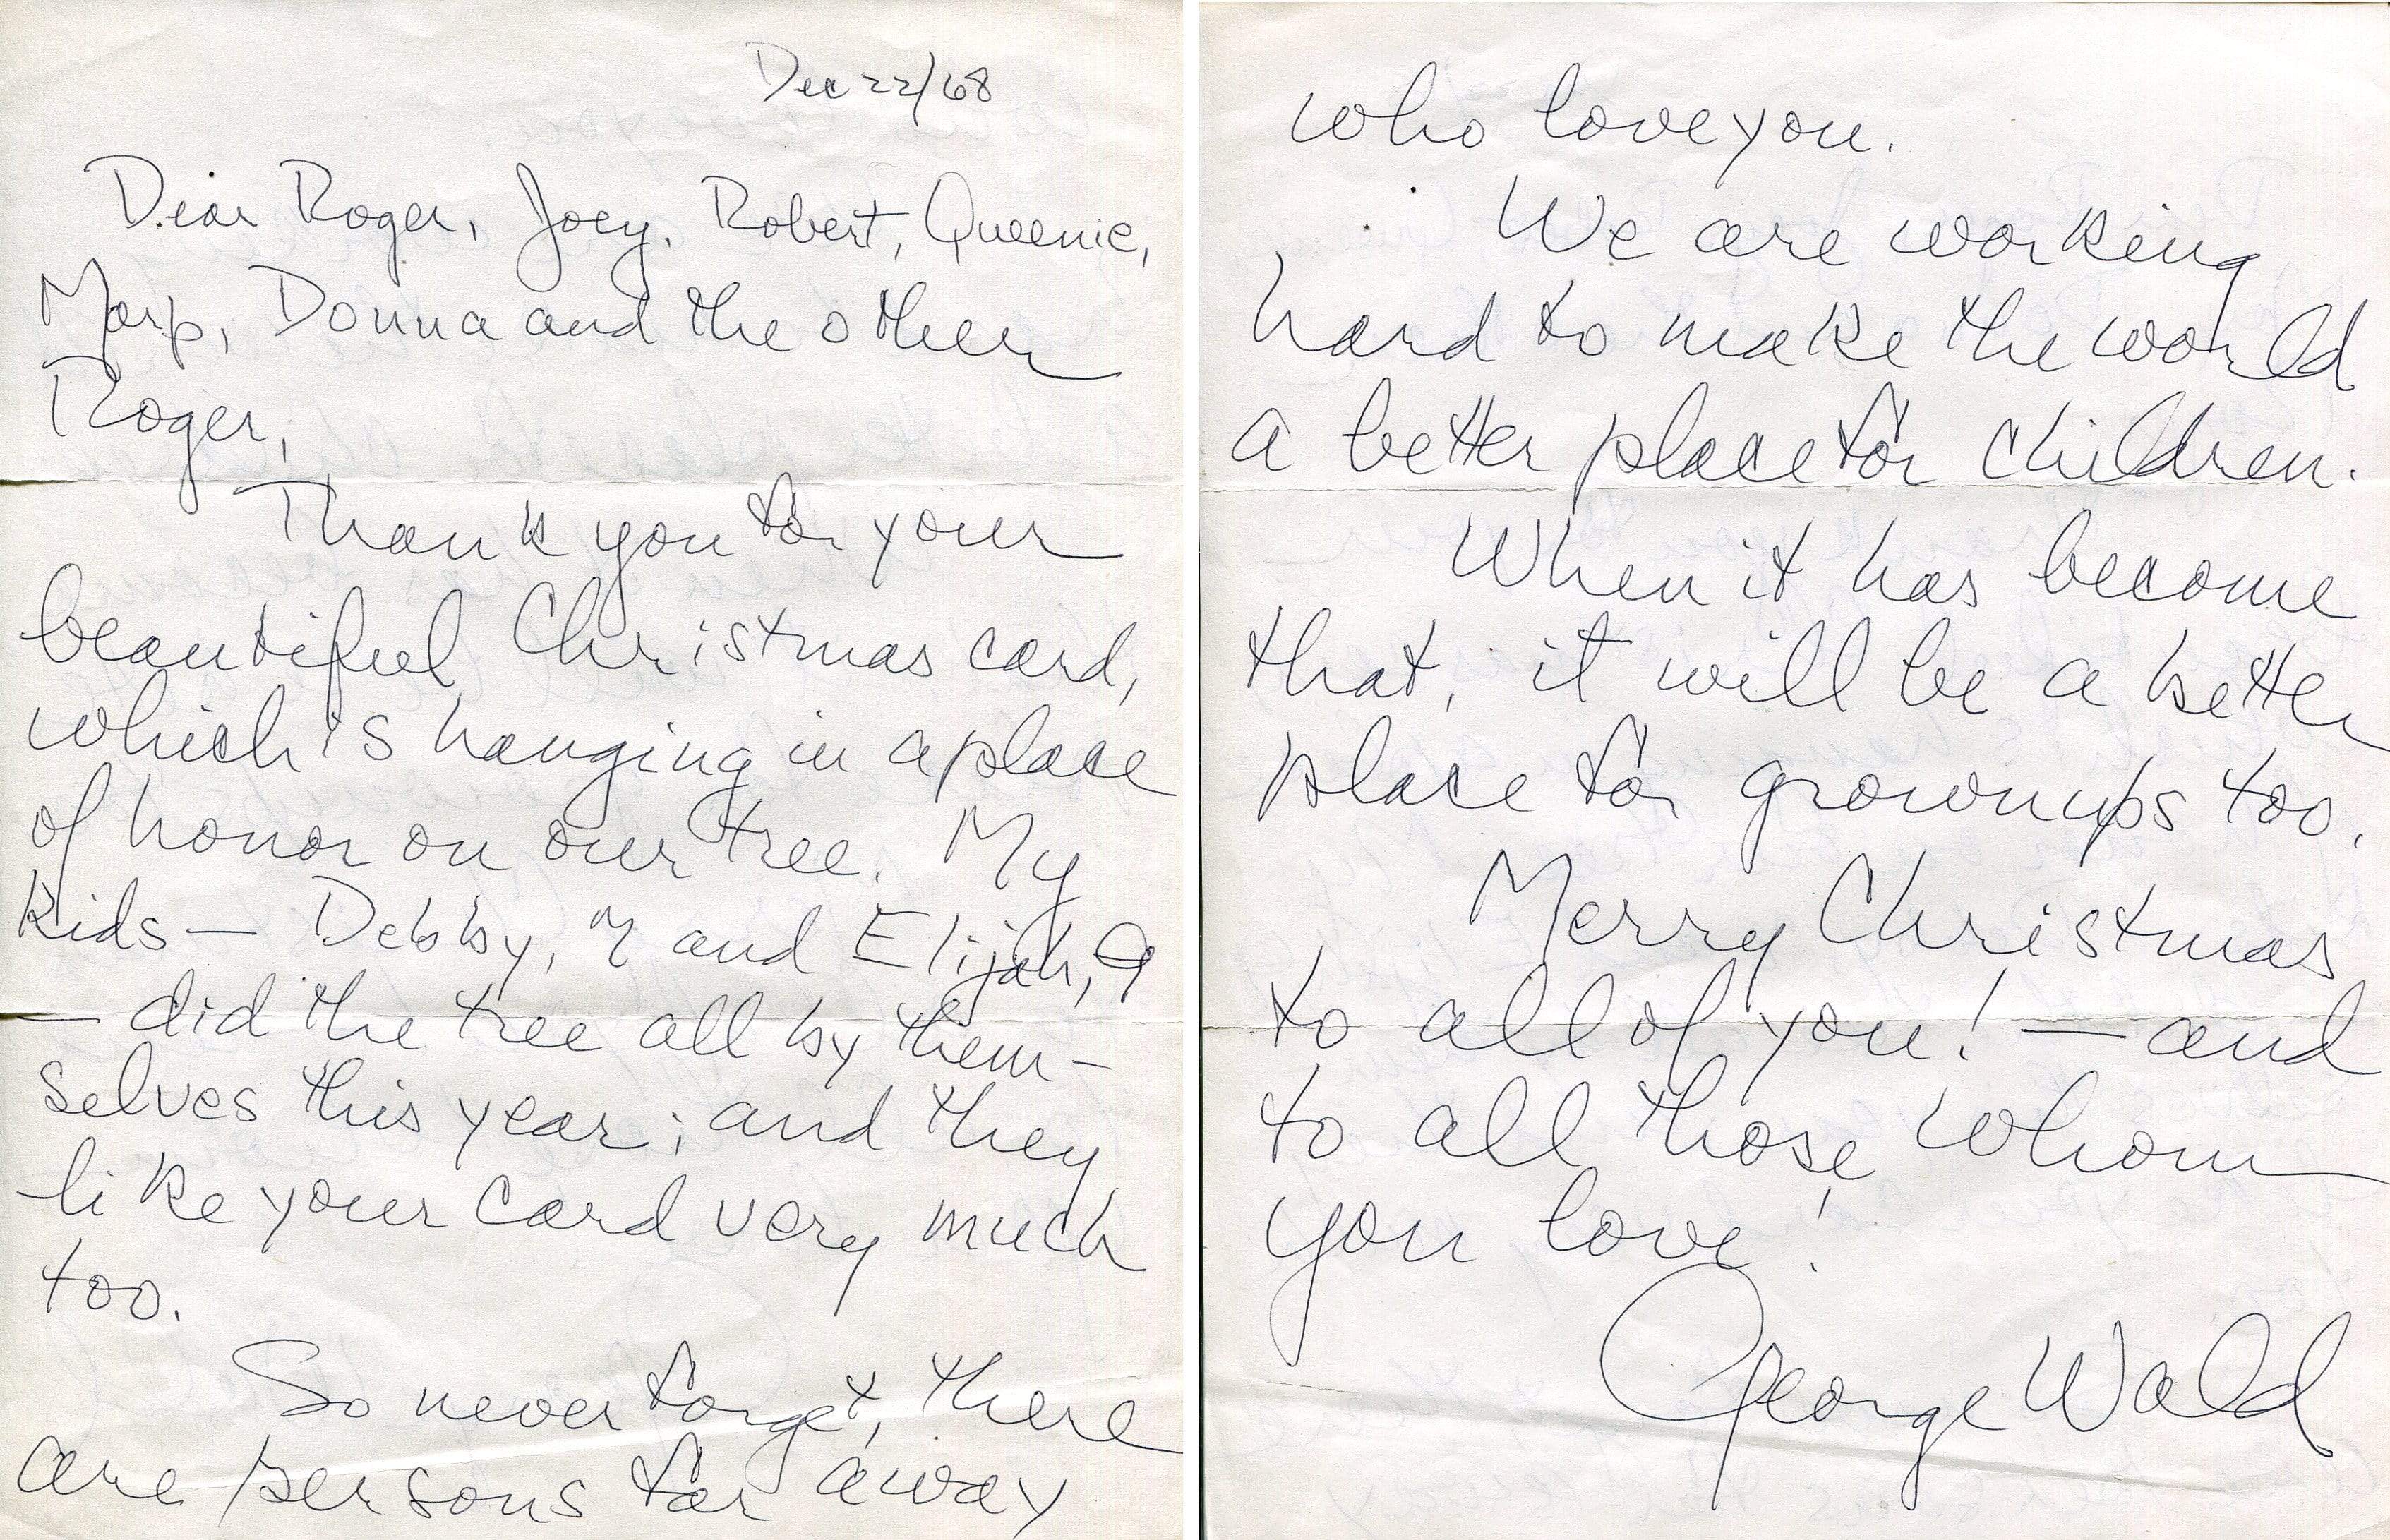 Dec 22/68
Dear Roger, Joey, Robert, Queenie,
Mary, Donna and the other
Roger,
Thank you for your
beautiful Christmas card,
which is hanging in a place
of honor on our tree. My
kids — Debby, 7 and Elijah, 9
— did the tree all by them-
selves this year; and they
like your card very much
too.
So never forget, there
are persons far away
who love you.
We are working
hard to make the world
a better place for children.
When it has become
that, it will be a better
place for grownups too.
Merry Christmas
to all of you! — and
to all those whom
you love!
George Wald